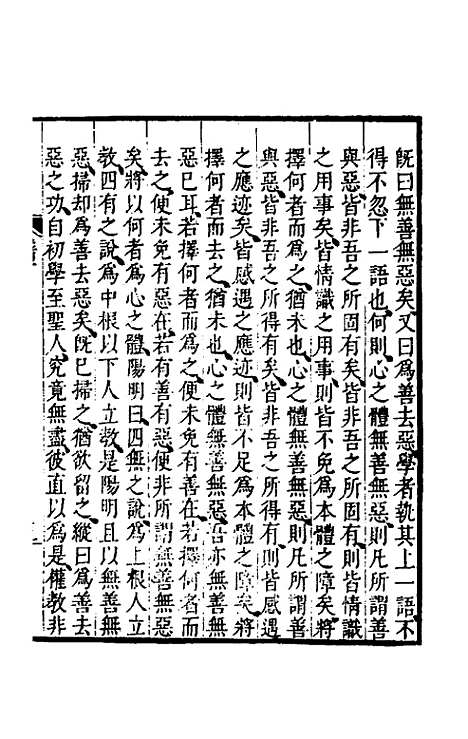 既曰無善無惡矣又曰爲善去惡學者執其上一語不
得不忽下一語也何則心之體無善無惡則凡所謂善
與惡皆非吾之所固有矣皆非吾之所固有則皆情識
之用事矣皆情識之用事則不免爲本體之障矣將
擇何者而爲之猶未也心之體無善無惡則凡所謂善
與惡皆非吾之所得有矣皆非吾之所得有則皆感遇
之應迹矣皆感遇之應迹則皆不足爲本體之障矣將
擇何者而去之猶未也心之體無善無惡吾亦無善無
惡已耳若擇何者而爲之便未免有善在若擇何者而
去之便未免有惡在若有善有惡便非所謂無善無惡
矣將以何者爲心之體陽明曰四無之說爲上根人立
教四有之說爲中根以下人立教是陽明且以無善無
惡掃却爲善去惡矣旣已掃之猶欲留之縱曰爲善去
惡之功自初學至聖人究竟無盡彼直以爲是權教非